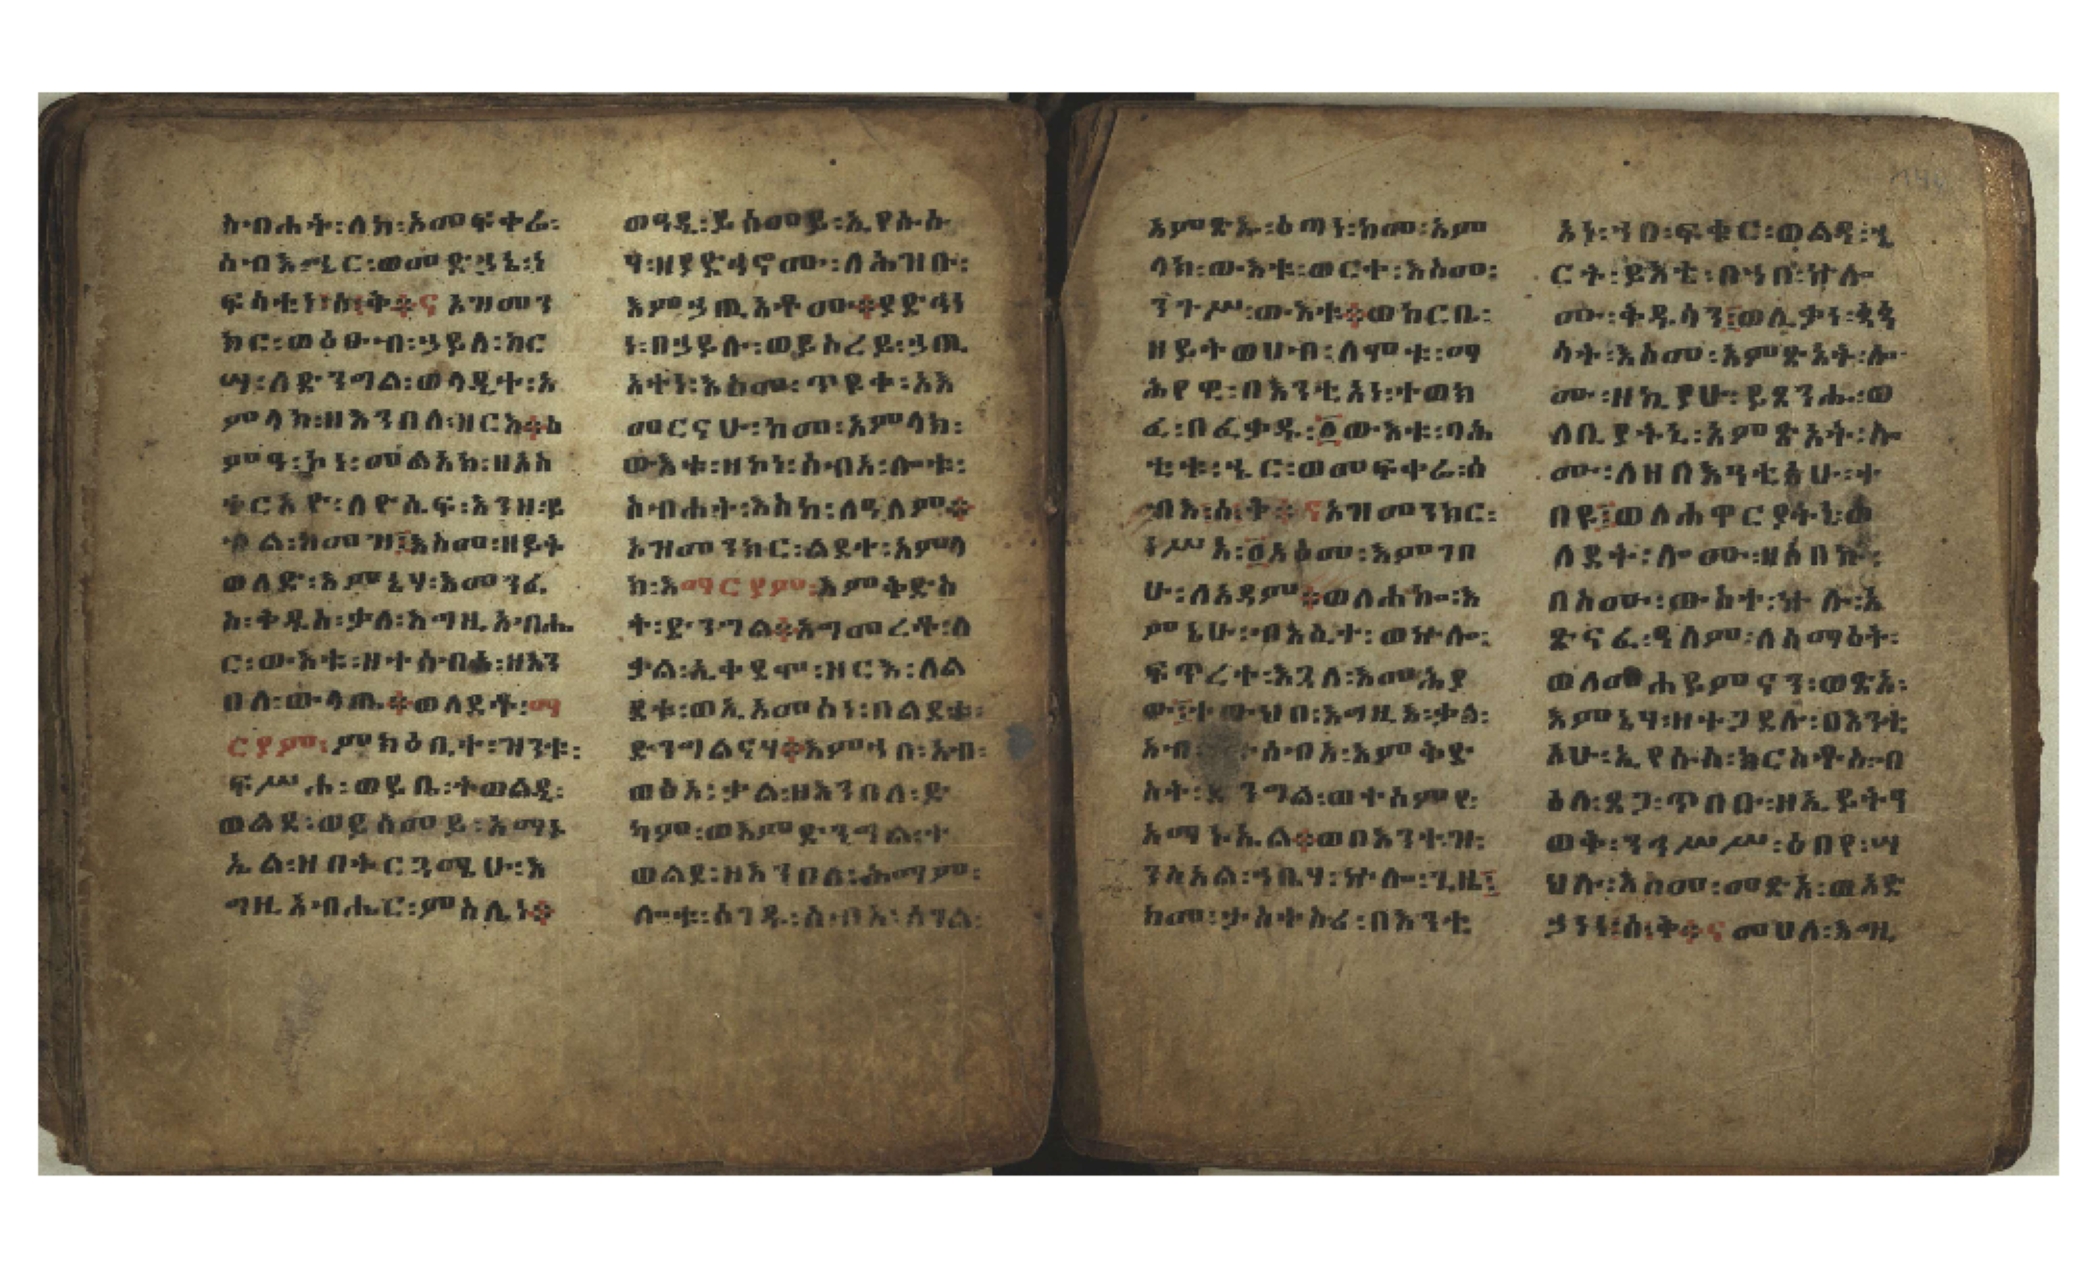 ስብሐት፡ለከ፡እመፍተሬ፡
ሰብእ፡ኄር፡ወመድኃኒ፡ነ
ፍሳቲነ፡ስ፡ቅ፨ና እዝመን
ክር፡ወዕፁብ፡ኃይለ፡ከር
ሣ፡ለድንግል፡ወላዲተ፡አ
ምላክ፡ዘእንበለ፡ዘርእ፨ሰ
ምዓ፡ኮነ፡መልአክ፡ዘአስ
ተርአዮ፡ለዮሴፍ፡እንዘ፡ይ
ብል፡ከመዝ፤እስመ፡ዘይት
ወለድ፡እምኔሃ፡እመንፈ
ስ፡ቅዱስ፡ቃለ፡እግዚአብሔ
ር፡ውእቱ፡ዘተሰብአ፡ዘእን
በለ፡ውላጤ፨ወለደቶ፡ማ
ርያም፡ምክዕቢተ፡ዝንቱ፡
ፍሥሐ፡ወይቤ፡ተወልዲ፡
ወልደ፡ወይሰመይ፡አማኑ
ኤል፡ዘበትርጓሜሁ፡እ
ግዚአብሔር፡ምስሌነ፨
ወዓዲ፡ይሰመይ፡ኢየሱስ
ሃ፡ዘያድኅኖሙ፡ለሕዝቡ፡
እምኃጢአቶሙ፨ያድኅነ
ነ፡በኃይሉ፡ወይስረይ፡ኃጢ
አተነ፡እስመ፡ጥዩቀ፡አእ
መርናሁ፡ከመ፡አምላክ፡
ውእቱ፡ዘኮነ፡ሰብአ፡ሎቱ፡
ስብሐት፡እስከ፡ለዓለም፨
እዝመንክር፡ልደተ፡አምላ
ክ፡እማርያም፡እምቅድስ
ት፡ድንግል፨አግመረቶ፡ለ
ቃል፡ኢቀደሞ፡ዘርእ፡ለል
ደቱ፡ወኢአመሰነ፡በልደቱ፡
ድንግልናሃ፨እምኀበ፡አብ፡
ወፅአ፡ቃል፡ዘእንበለ፡ድ
ካም፡ወእምድንግል፡ተ
ወልደ፡ዘእንበለ፡ሕማም፡
ሎቱ፡ሰገዱ፡ሰብአ፡ሰገል፡
አምጽኡ፡ዕጣነ፡ከመ፡አም
ላክ፡ውእቱ፡ወርቀ፡እስመ፡
ንጉሥ፡ውእቱ፨ወከርቤ፡
ዘይትወሀብ፡ለሞቱ፡ማ
ሕየዊ፡በእንቲአነ፡ተወክ
ፈ፡በፈቃዱ፡፩ውእቱ፡ባሕ
ቲቱ፡ኄር፡ወመፍቀሬ፡ሰ
ብእ፡ስ፡ት፨ና እዝመንክር፡
ነሥአ፡፩አፅመ፡እምገቦ
ሁ፡ለአዳም፨ወለሐኰ፡እ
ምኔሁ፡ብእሲተ፡ወኵሎ፡
ፍጥረተ፡እጓለ፡እመሕያ
ው፤ተውህበ፡እግዚእ፡ቃለ፡
አብ፡ተሰብአ፡እምቅድ
ስት፡ድንግል፡ወተሰምየ፡
አማኑኤል፨ወበእንተዝ፡
ንስአል፡ኀቤሃ፡ኵሎ፡ጊዜ፤
ከመ፡ታስተስሪ፡በእንቲ
አነ፡ኀበ፡ፍቁር፡ወልዳ፡ኄ
ርት፡ይእቲ፡በኀበ፡ኵሎ
ሙ፡ቅዱሳን፤ወሊቃነ፡ጳጳ
ሳት፡እስመ፡አምጽአት፡ሎ
ሙ፡ዘኪያሁ፡ይጸንሑ፡ወ
ለነቢያትኒ፡አምጽአት፡ሎ
ሙ፡ለዘበእንቲአሁ፡ተ
ነበዩ፤ወለሐዋርያትኒ፡ወ
ለደት፡ሎሙ፡ዘሰበኩ፡
በስሙ፡ውስተ፡ኵሉ፡አ
ጽናፈ፡ዓለም፡ለሰማዕት፡
ወለመሐይምናን፡ወጽአ፡
እምኔሃ፡ዘተጋደሉ፡በእንቲ
አሁ፡ኢየሱስ፡ክርስቶስ፡ብ
ዕለ፡ጸጋ፡ጥበቡ፡ዘኢይትዓ
ወቅ፡ንኅሥሥ፡ዕበየ፡ሣ
ህሉ፡እስመ፡መጽአ፡ወአድ
ኃነነ፡ስ፡ቅ፨ና መሀለ፡እግዚ